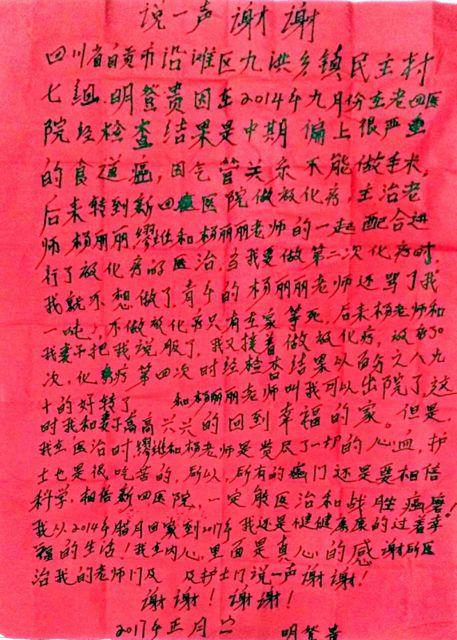 说一声谢谢
四川省自贡市沿滩区九洪乡镇民主村
七组.明誉贵因在2014年九月份在老四医
院经检查结果是中期偏上很严重
的食道癌,因气管关系不能做手术,
后来转到新四医院做放化疗,主治老
师杨丽丽,缪继和杨丽丽老师的一起配合进
行了放化疗的医治,当我要做第二次化疗时,
我就不想做了,青年的杨丽丽老师还骂了我
一吨!不做放化疗只有在家等死,后来杨老师和
我妻子把我说服了,我又接着做放化疗,放疗30
次,化疗第四次时经检查结果以百分之八九
十的好转了 和杨丽丽老师叫我可以出院了,这
时我和妻子高高兴兴的回到幸福的家。但是,
我在医治时缪继和杨老师是费尽了一切的心血,护
士也是很吃苦的,所以,所有的癌门还是要相信
科学,相信新四医院,一定能医治和战胜癌磨!
我从2014年腊月回家到2017年我还是健健康康的过着幸
福的生活!我在内心里面是真心的感谢所医
治我的老师门及 及护士门说一声谢谢!
谢谢!谢谢!
2017年正月六 明誉贵